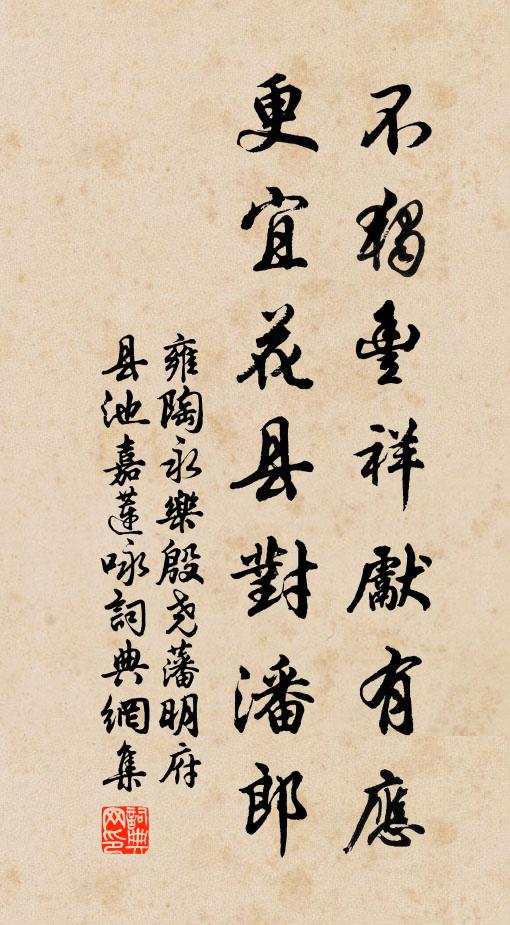 不獨豊祥獻有應
更宜花县對潘郎
雍陶永樂殷尧藩明府
县池嘉蓮咏詞典網集
詞典网印